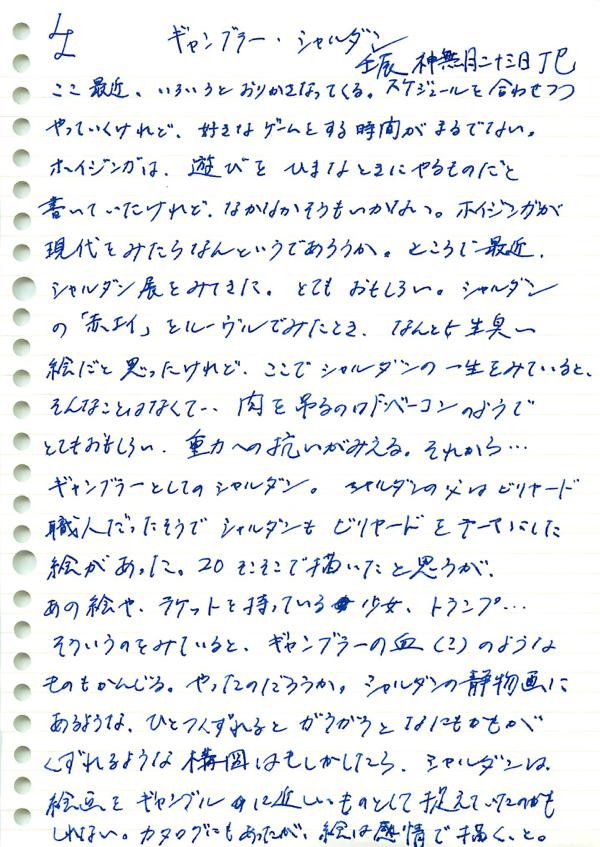 ギャンブラー・シャルダン
壬辰 神無月二十三日 丁巳
ここ最近、いろいろとおりかさなってくる。スケジュールを合わせつつ
やっていくけれど、好きなゲームをする時間がまるでない。
ホイジンガは、遊びをひまなときにやるものだと
書いていたけれど、なかなかそうもいかない。ホイジンガが
現代をみたらなんというであろうか。ところで最近、
シャルダン展をみてきた。とてもおもしろい。シャルダン
の「赤エイ」をルーヴルでみたとき、なんとも生臭い
絵だと思ったけれど、ここでシャルダンの一生をみていると、
そんなことはなくて… 肉を吊るのはベーコンのようで
とてもおもしろい、重力への抗いがみえる。それから…
ギャンブラーとしてのシャルダン。シャルダンの父はビリヤード
職人だったそうでシャルダンもビリヤードをテーマにした
絵があった。20そこそこで描いたと思うが、
あの絵や、ラケットを持っている少女、トランプ…
そういうのをみていると、ギャンブラーの血(?)のような
ものもかんじる。やったのだろうか。シャルダンの静物画に
あるような、ひとつくずれるとガラガラとなにもかもが
くずれるような構図はもしかしたら、シャルダンは、
絵画をギャンブルに近しいものとして捉えていたのかも
しれない。カタログにもあったが、絵は感情で描く、と。